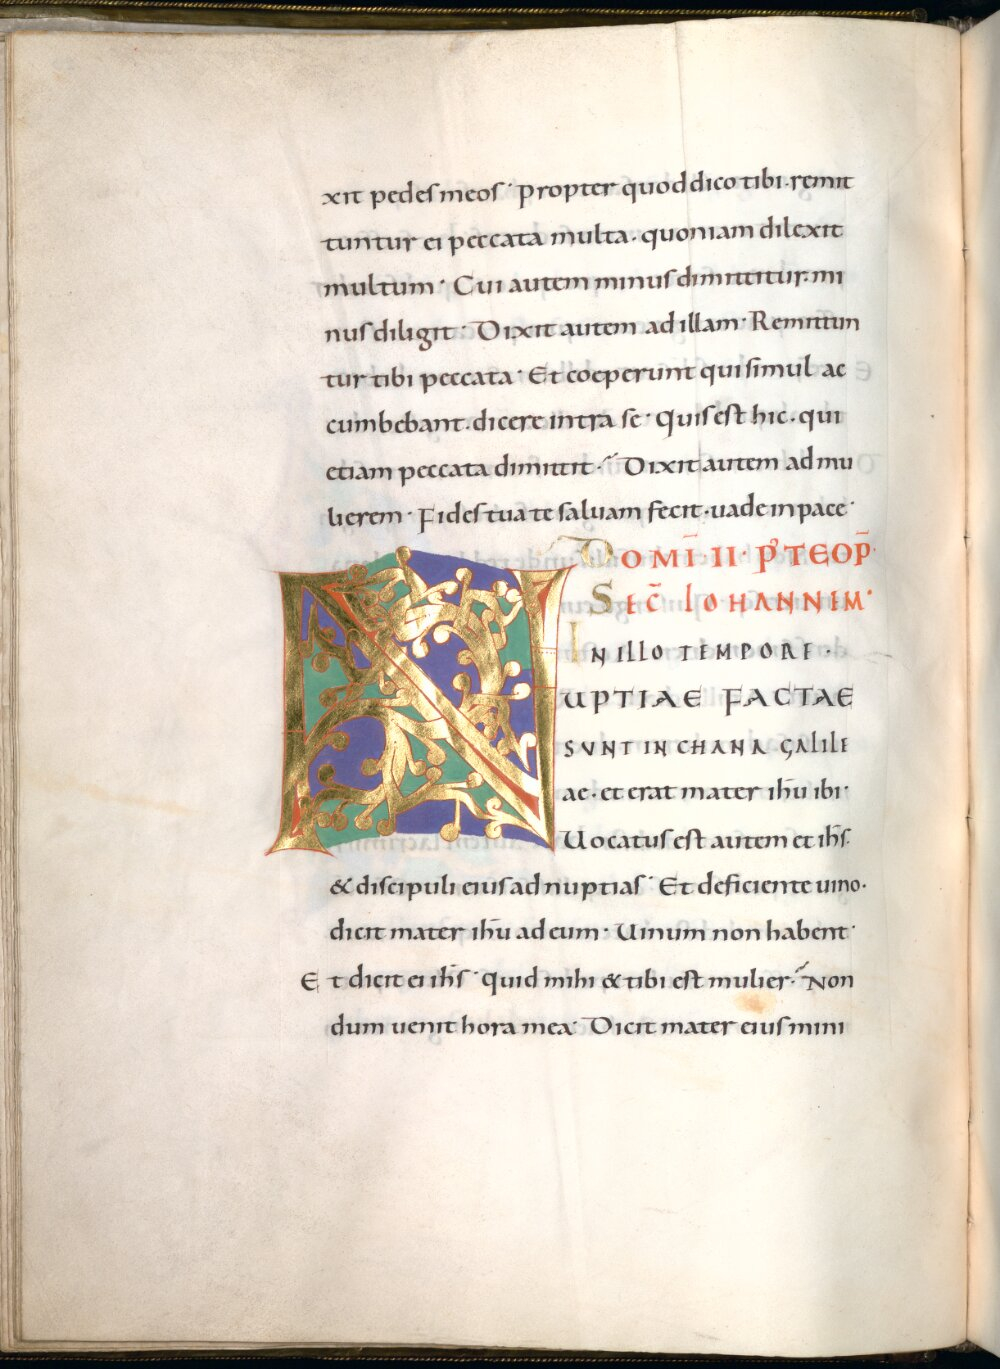 xit pedes meos · Propter quod dico tibi · remit
tuntur ei peccata multa · quoniam dilexit
multum · Cui autem minus dimittitur · mi
nus diligit · Dixit autem ad illam · Remittun
tur tibi peccata · Et coeperunt qui simul ac
cumbebant · dicere intra se · quis est hic · qui
etiam peccata dimittit · Dixit autem ad mu
lierem · Fides tua te saluam fecit · uade in pace ·
DOMĪ II · P̄ TEOP̄ ·
SEC̄ IOHANNEM ·
IN ILLO TEMPORE ·
NUPTIAE FACTAE
SVNT IN CHANA GALILE
ae · et erat mater ihū ibi ·
Uocatus est autem et ihs̄
& discipuli eius ad nuptias · Et deficiente uino ·
dicit mater ihū ad eum · Uinum non habent ·
Et dicit ei ihs̄ · quid mihi & tibi est mulier · Non
dum uenit hora mea · Dicit mater eius mini